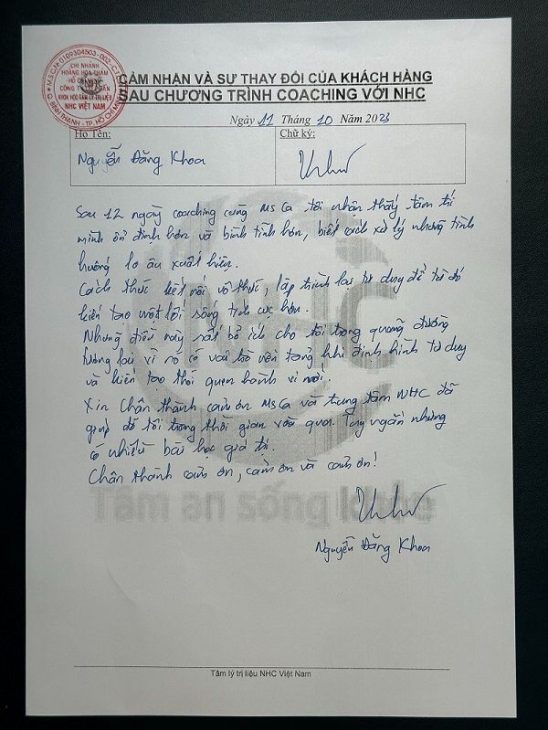 M.S.C.N: 0109304503-002
CHI NHÁNH
HOÀNG HOA THÁM
HỒ CHÍ MINH
KHOA HỌC TÂM LÝ TRỊ LIỆU
NHC VIỆT NAM
Q. BÌNH THẠNH - TP. HỒ CHÍ MINH
CẢM NHẬN VÀ SỰ THAY ĐỔI CỦA KHÁCH HÀNG
SAU CHƯƠNG TRÌNH COACHING VỚI NHC
Ngày 11 Tháng 10 Năm 2023
Họ Tên:
Chữ ký:
Nguyễn Đăng Khoa
Sau 12 ngày coaching cùng Ms Ca tôi nhận thấy tâm trí
mình ổn định hơn và bình tĩnh hơn, biết cách xử lý những tình
huống lo âu xuất hiện.
Cách thức kết nối vô thức, lập trình lại tư duy để từ đó
kiến tạo một lối sống tích cực hơn.
Những điều này rất bổ ích cho tôi trong quãng đường
tương lai vì nó có vai trò nền tảng khi định hình tư duy
và kiến tạo thói quen hành vi mới.
Xin chân thành cảm ơn Ms Ca và trung tâm NHC đã
giúp đỡ tôi trong thời gian vừa qua. Tuy ngắn nhưng
có nhiều bài học giá trị.
Chân thành cảm ơn, cảm ơn và cảm ơn!
NHC
Tâm an sống khỏe
Nguyễn Đăng Khoa
Tâm lý trị liệu NHC Việt Nam